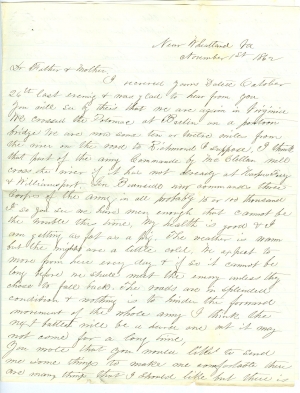 Near Wheatland Va
November 1st 1862
Dr Father & Mother,
I received yours dated October
26th last evening & was glad to hear from you
You will see by this that we are again in Virginia
We crossed the Potomac at Berlin on a pontoon
bridge We are now some ten or twelve miles from
the river on the road to Richmond I suppose, I think
that part of the army Commanded by McClellan will
cross the river if it has not already at Harpers Ferry
& Williamsport, Gen Burnside now commands three
Corps of the army, in all probably 70 or 100 thousand
so you see we have men enough that cannot be
the trouble this time, My health is good & I
am getting as fat as a pig. The weather is warm
but the nights are a little cold. We expect to
move from here every day & if so it cannot be
long before we shall meet the enemy unless they
chose to fall back. The roads are in splendid
condition & nothing is to hinder the forward
movement of the whole army I think the
next battle will be a severe one but it may
not come for a long time,
You wrote that you would like to send
me some things to make me comfortable there
are many things that I should like but there is